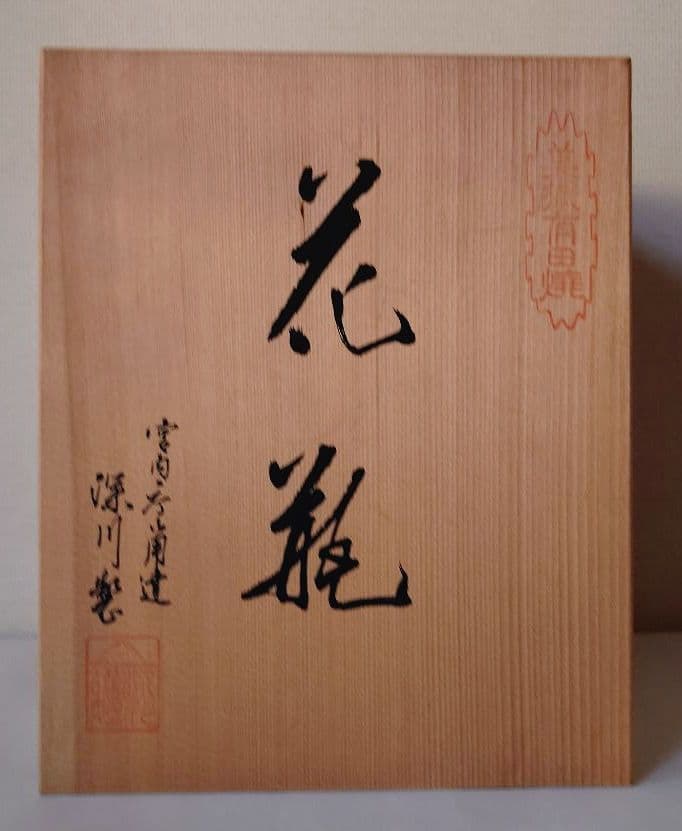 有田焼
花瓶
宮内庁御用達
深川製